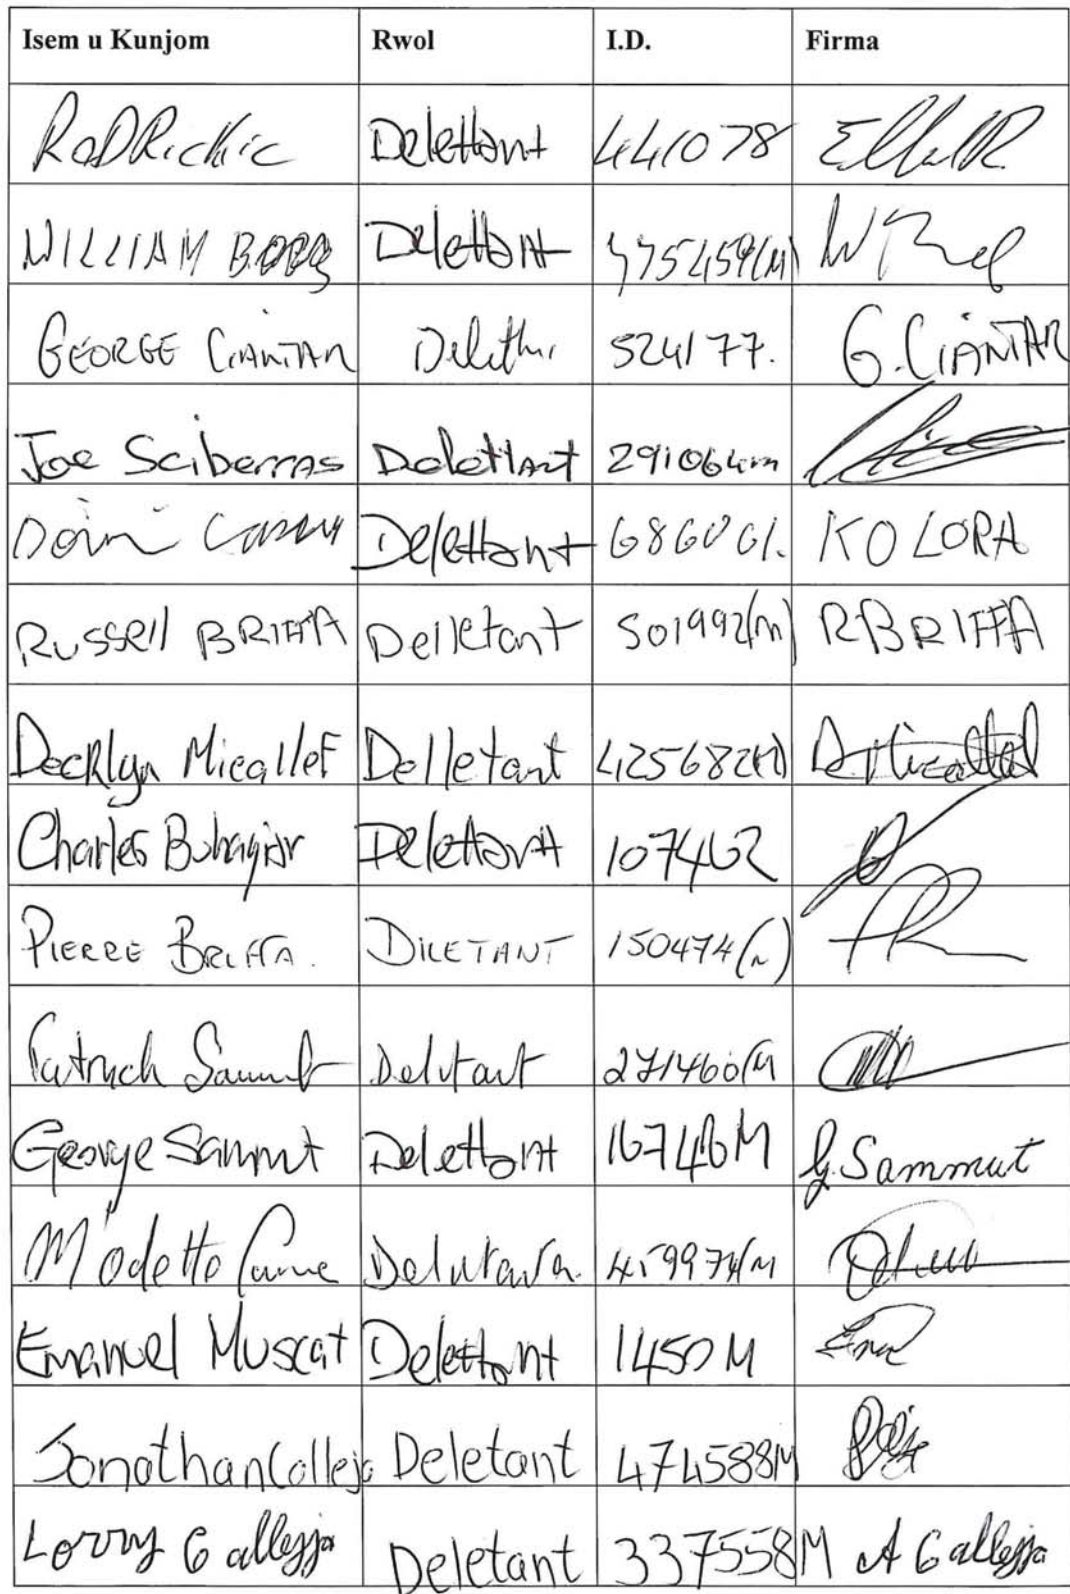 Isem u Kunjom Rwol I.D. Firma
RodRickic Delettant 441078
WILLIAM Delettant
GEORGE CIANTAR 524177. G. CIANTAR
Joe Sciberras Delettant 291064m
Delettant KOLORA
RUSSEll BRIFFA Delletant 501992(m) RBRIFFA
Decklyn Micallef Delletant 425682(M)
Charles Buhagiar Delettant 107462
PIERRE BRIFFA. DILETANT 150474(m)
Patrick Sammut Delutant 271460(M
George Sammut Delettant 16746M G. Sammut
459974(M
Emanuel Muscat Delettant 1450M
Jonathan Calleja Deletant 474588M
Lorry Calleja Deletant 337558M A Calleja